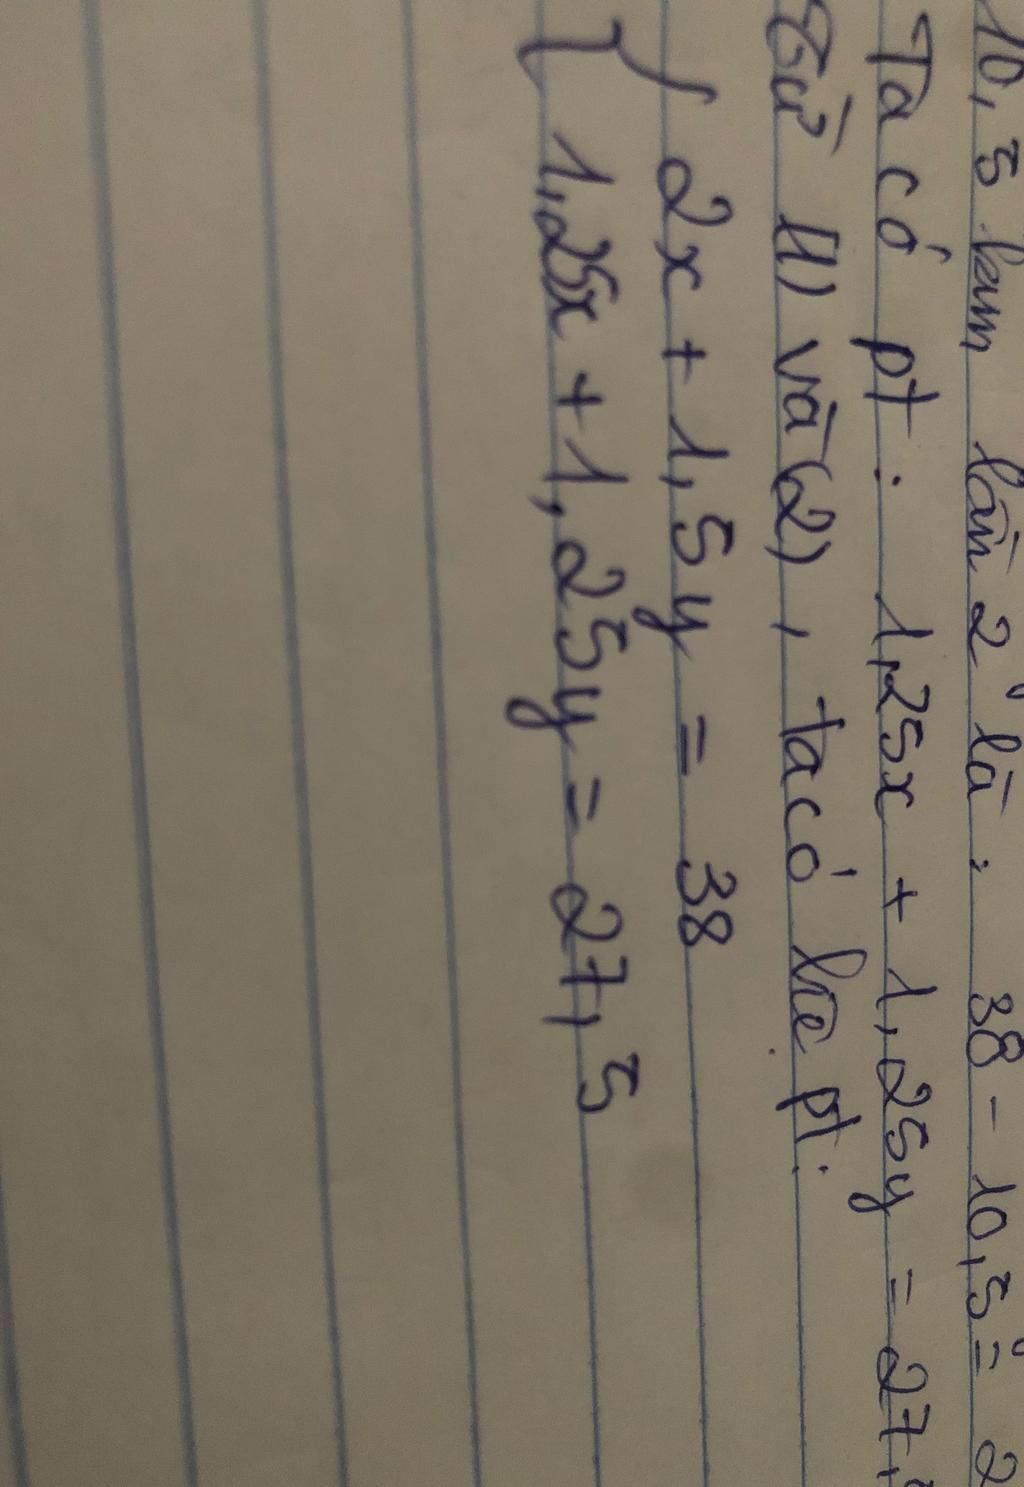 10,5 km lần 2 là: 38 - 10,5 = 2
Ta có pt: 1,25x + 1,25y = 27,
Từ (1) và (2), ta có hệ pt:
{ 2x + 1,5y = 38
1,25x + 1,25y = 27,5